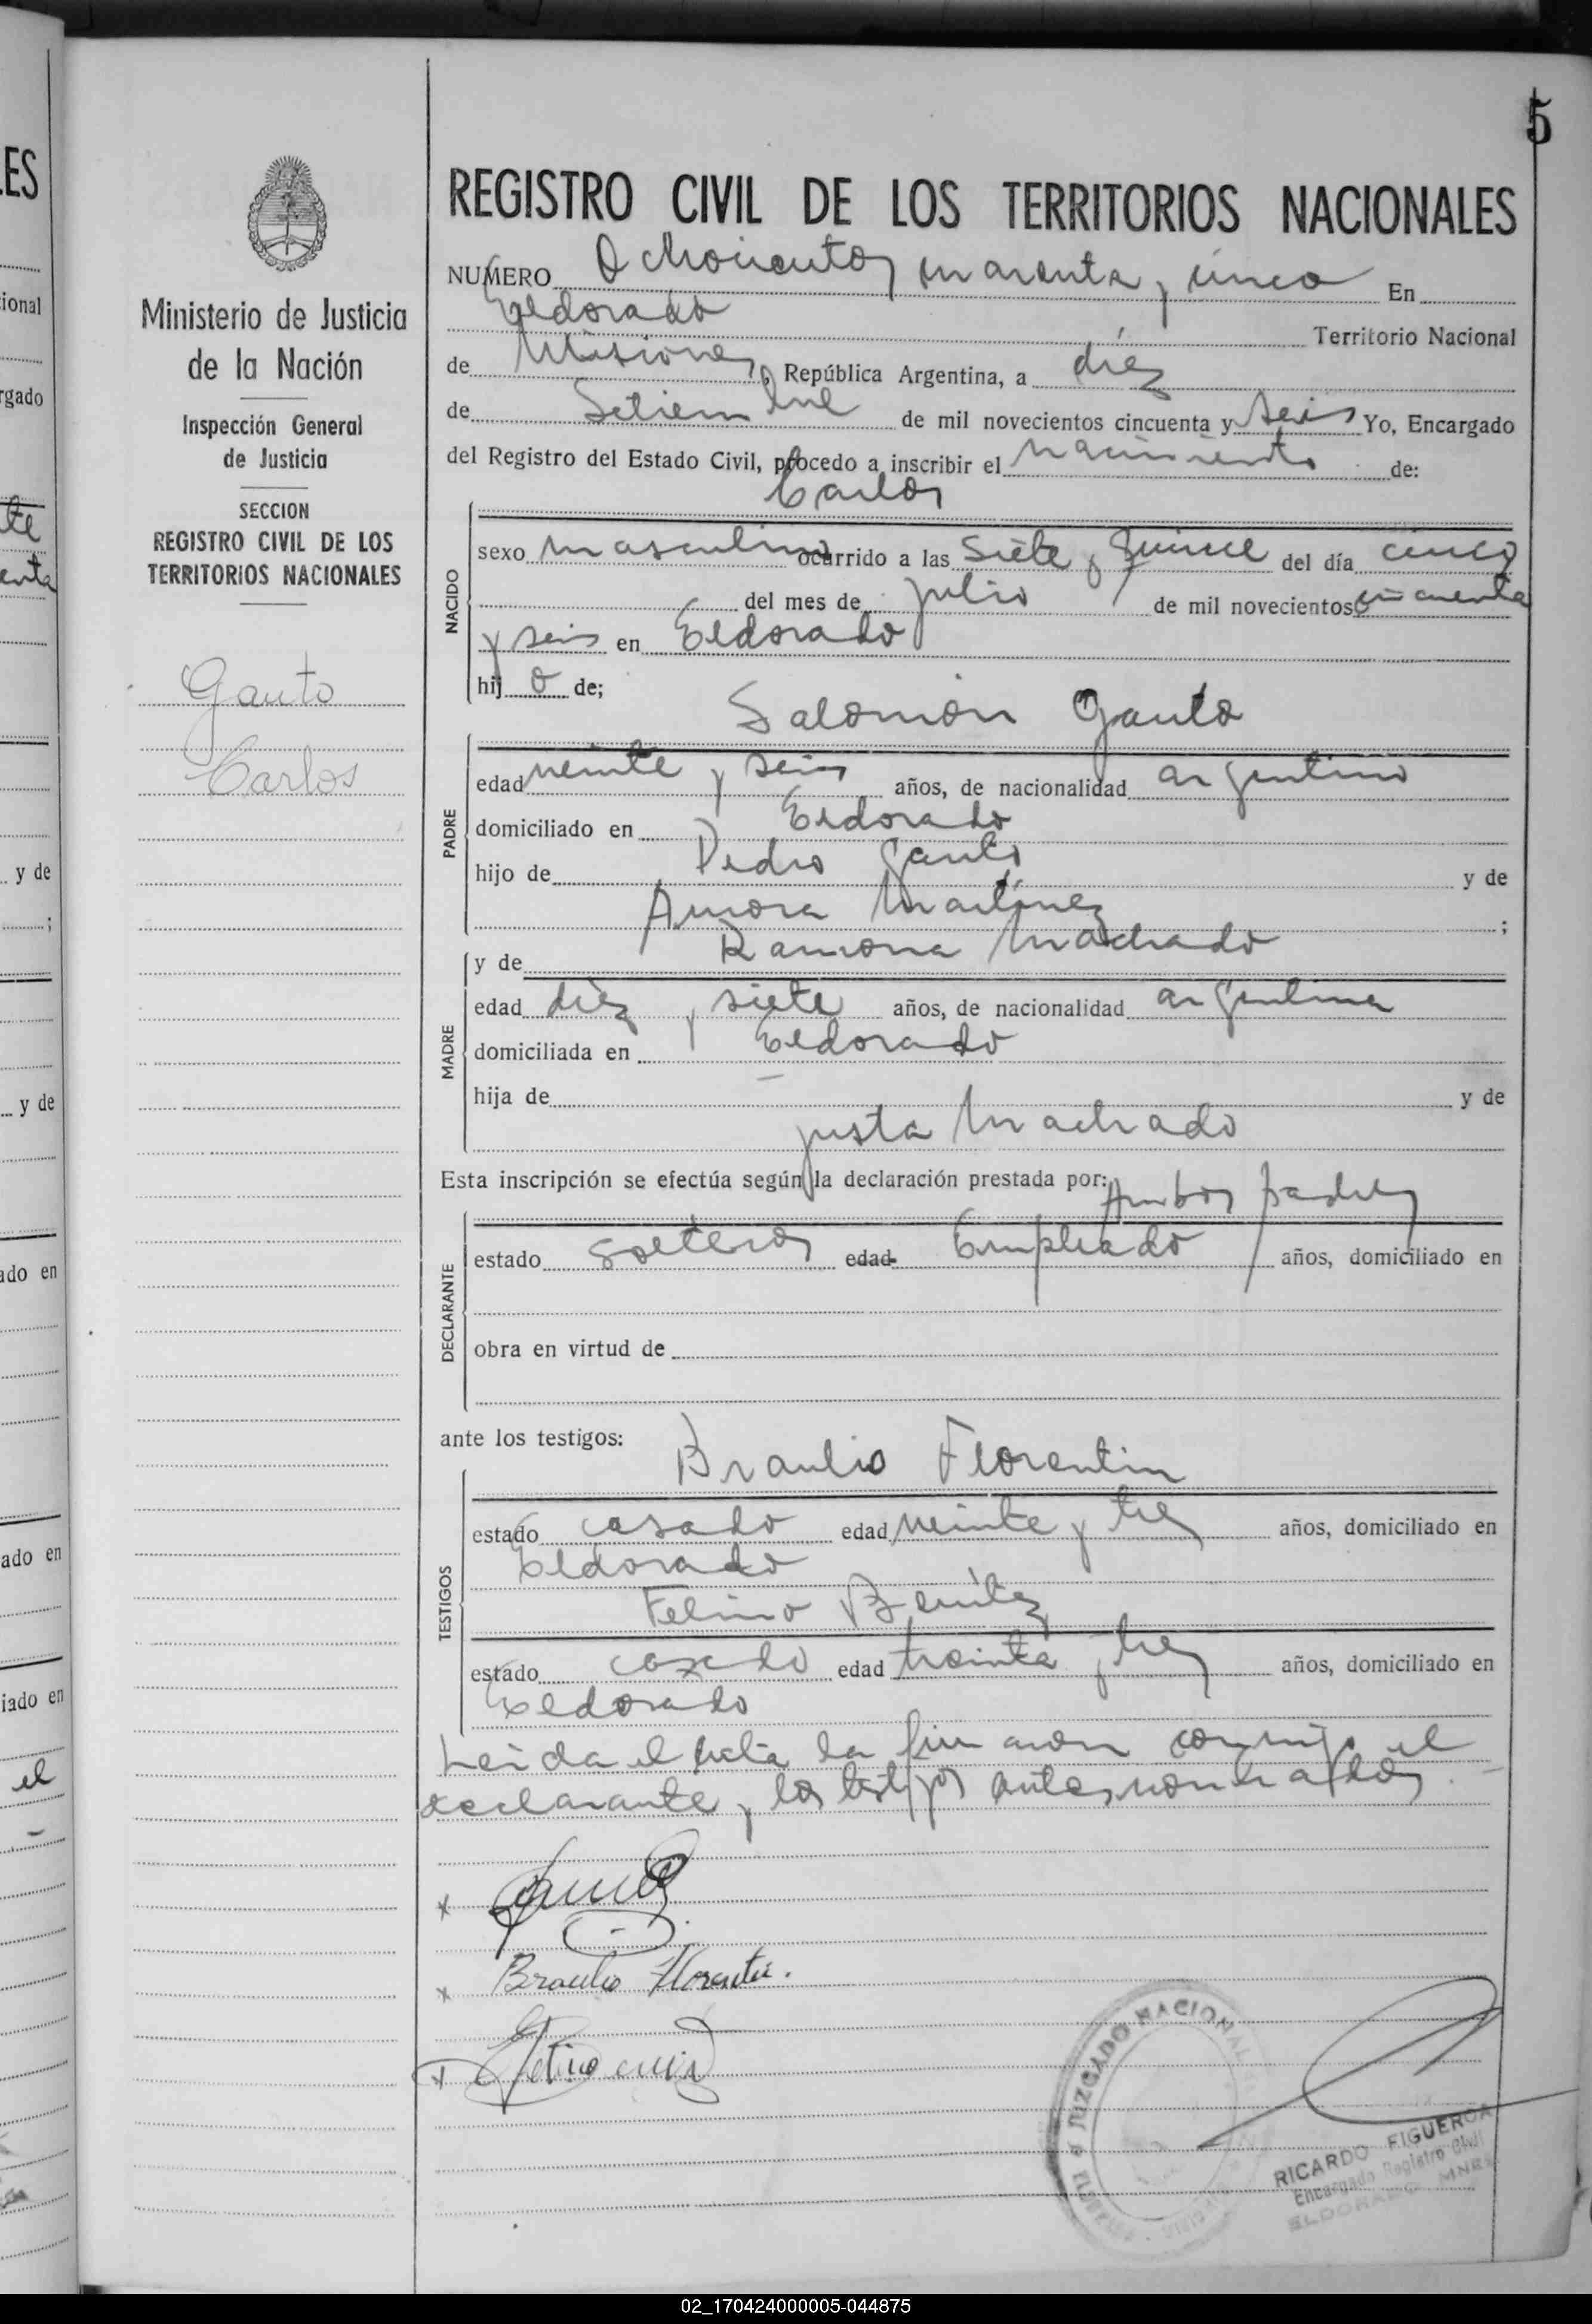 5
REGISTRO CIVIL DE LOS TERRITORIOS NACIONALES
Ministerio de Justicia
de la Nación
Inspección General
de Justicia
SECCION
REGISTRO CIVIL DE LOS
TERRITORIOS NACIONALES
Gauto
Carlos
NUMERO Ochocientos cuarenta y cinco En
Eldorado Territorio Nacional
de Misiones, República Argentina, a diez
de Setiembre de mil novecientos cincuenta y seis Yo, Encargado
del Registro del Estado Civil, procedo a inscribir el nacimiento de:
Carlos
NACIDO
sexo masculino ocurrido a las siete y quince del día cinco
del mes de julio de mil novecientos cincuenta
y seis en Eldorado
hij o de;
Salomón Gauto
PADRE
edad veinte y seis años, de nacionalidad argentino
domiciliado en Eldorado
hijo de Pedro Gauto y de
Aurora Martínez ;
y de Ramona Machado
MADRE
edad diez y siete años, de nacionalidad argentina
domiciliada en Eldorado
hija de — y de
justa Machado
Esta inscripción se efectúa según la declaración prestada por: Ambos padres
DECLARANTE
estado solteros edad Empleado años, domiciliado en
obra en virtud de
ante los testigos:
Braulio Florentin
TESTIGOS
estado casado edad veinte y tres años, domiciliado en
Eldorado
Felino Benítez
estado casado edad treinta y tres años, domiciliado en
Eldorado
Leida el acta la firmaron conmigo el
declarante y los testigos antes nombrados.
x
x Braulio Florentin.
x
JUZGADO NACIONAL
RICARDO FIGUEROA
Encargado Registro Civil
ELDORADO MNES
ES
ional
rgado
te
enta
y de
;
y de
ado en
ado en
iado en
el
02_170424000005-044875